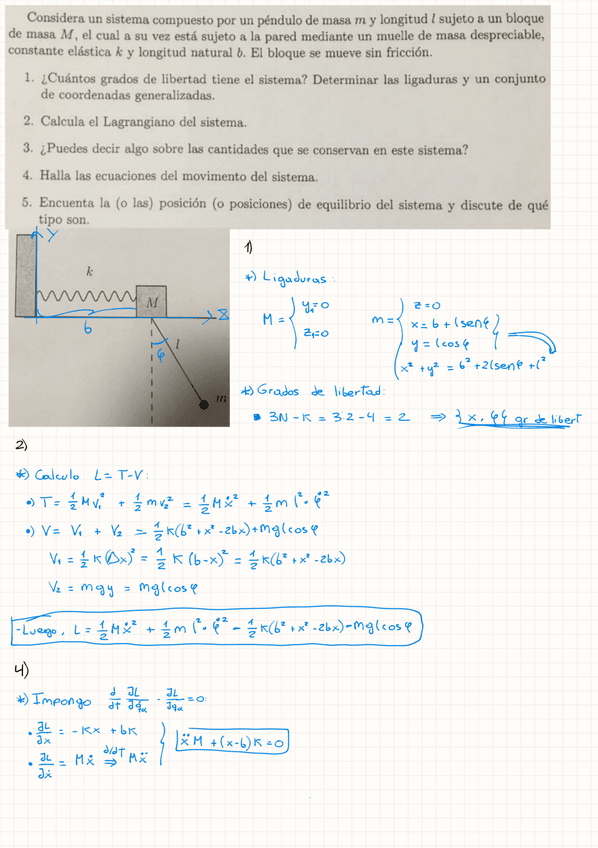 Considera un sistema compuesto por un péndulo de masa m y longitud l sujeto a un bloque
de masa M, el cual a su vez está sujeto a la pared mediante un muelle de masa despreciable,
constante elástica k y longitud natural b. El bloque se mueve sin fricción.
1. ¿Cuántos grados de libertad tiene el sistema? Determinar las ligaduras y un conjunto
de coordenadas generalizadas.
2. Calcula el Lagrangiano del sistema.
3. ¿Puedes decir algo sobre las cantidades que se conservan en este sistema?
4. Halla las ecuaciones del movimiento del sistema.
5. Encuenta la (o las) posición (o posiciones) de equilibrio del sistema y discute de qué
tipo son.
Y
k
M
X
b
φ
l
m
1)
*) Ligaduras:
M = { y₁=0
z₁=0
m = { z=0
x = b + l sen φ
y = l cos φ
x² + y² = b² + 2l sen φ + l²
*) Grados de libertad:
• 3N - K = 3·2 - 4 = 2 ⇒ {x, φ} gr de libert
2)
*) Calculo L = T-V:
•) T = 1/2 M v₁² + 1/2 m v₂² = 1/2 M ẋ² + 1/2 m l² · φ̇²
•) V = V₁ + V₂ = 1/2 K(b² + x² - 2bx) + mg l cos φ
V₁ = 1/2 K (Δx)² = 1/2 K (b-x)² = 1/2 K(b² + x² - 2bx)
V₂ = mgy = mg l cos φ
-Luego, L = 1/2 M ẋ² + 1/2 m l² · φ̇² - 1/2 K(b² + x² - 2bx) - mg l cos φ
4)
*) Impongo d/dt ∂L/∂q̇α - ∂L/∂qα = 0:
• ∂L/∂x = -Kx + bK
• ∂L/∂ẋ = Mẋ d/dt ⇒ Mẍ
ẍM + (x-b)K = 0